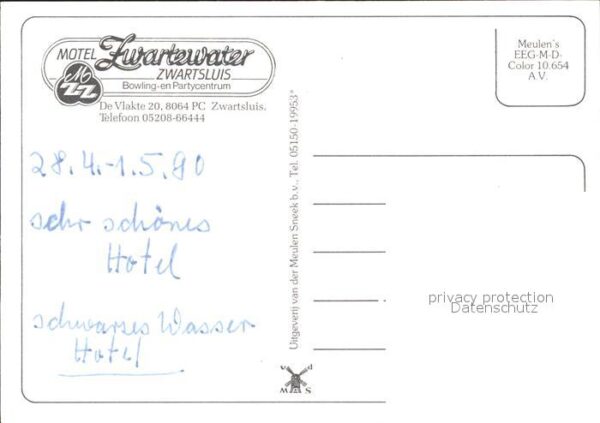 MOTEL Zwartewater
ZWARTSLUIS
Bowling-en Partycentrum
M
ZZ
De Vlakte 20, 8064 PC Zwartsluis.
Telefoon 05208-66444
28.4.-1.5.90
sehr schönes
Hotel
schwarzes Wasser
Hotel
Uitgeverij van der Meulen Sneek b.v., Tel. 05150-19953*
Meulen's
EEG-M-D-
Color 10.654
A V.
privacy protection
Datenschutz
v d
M S